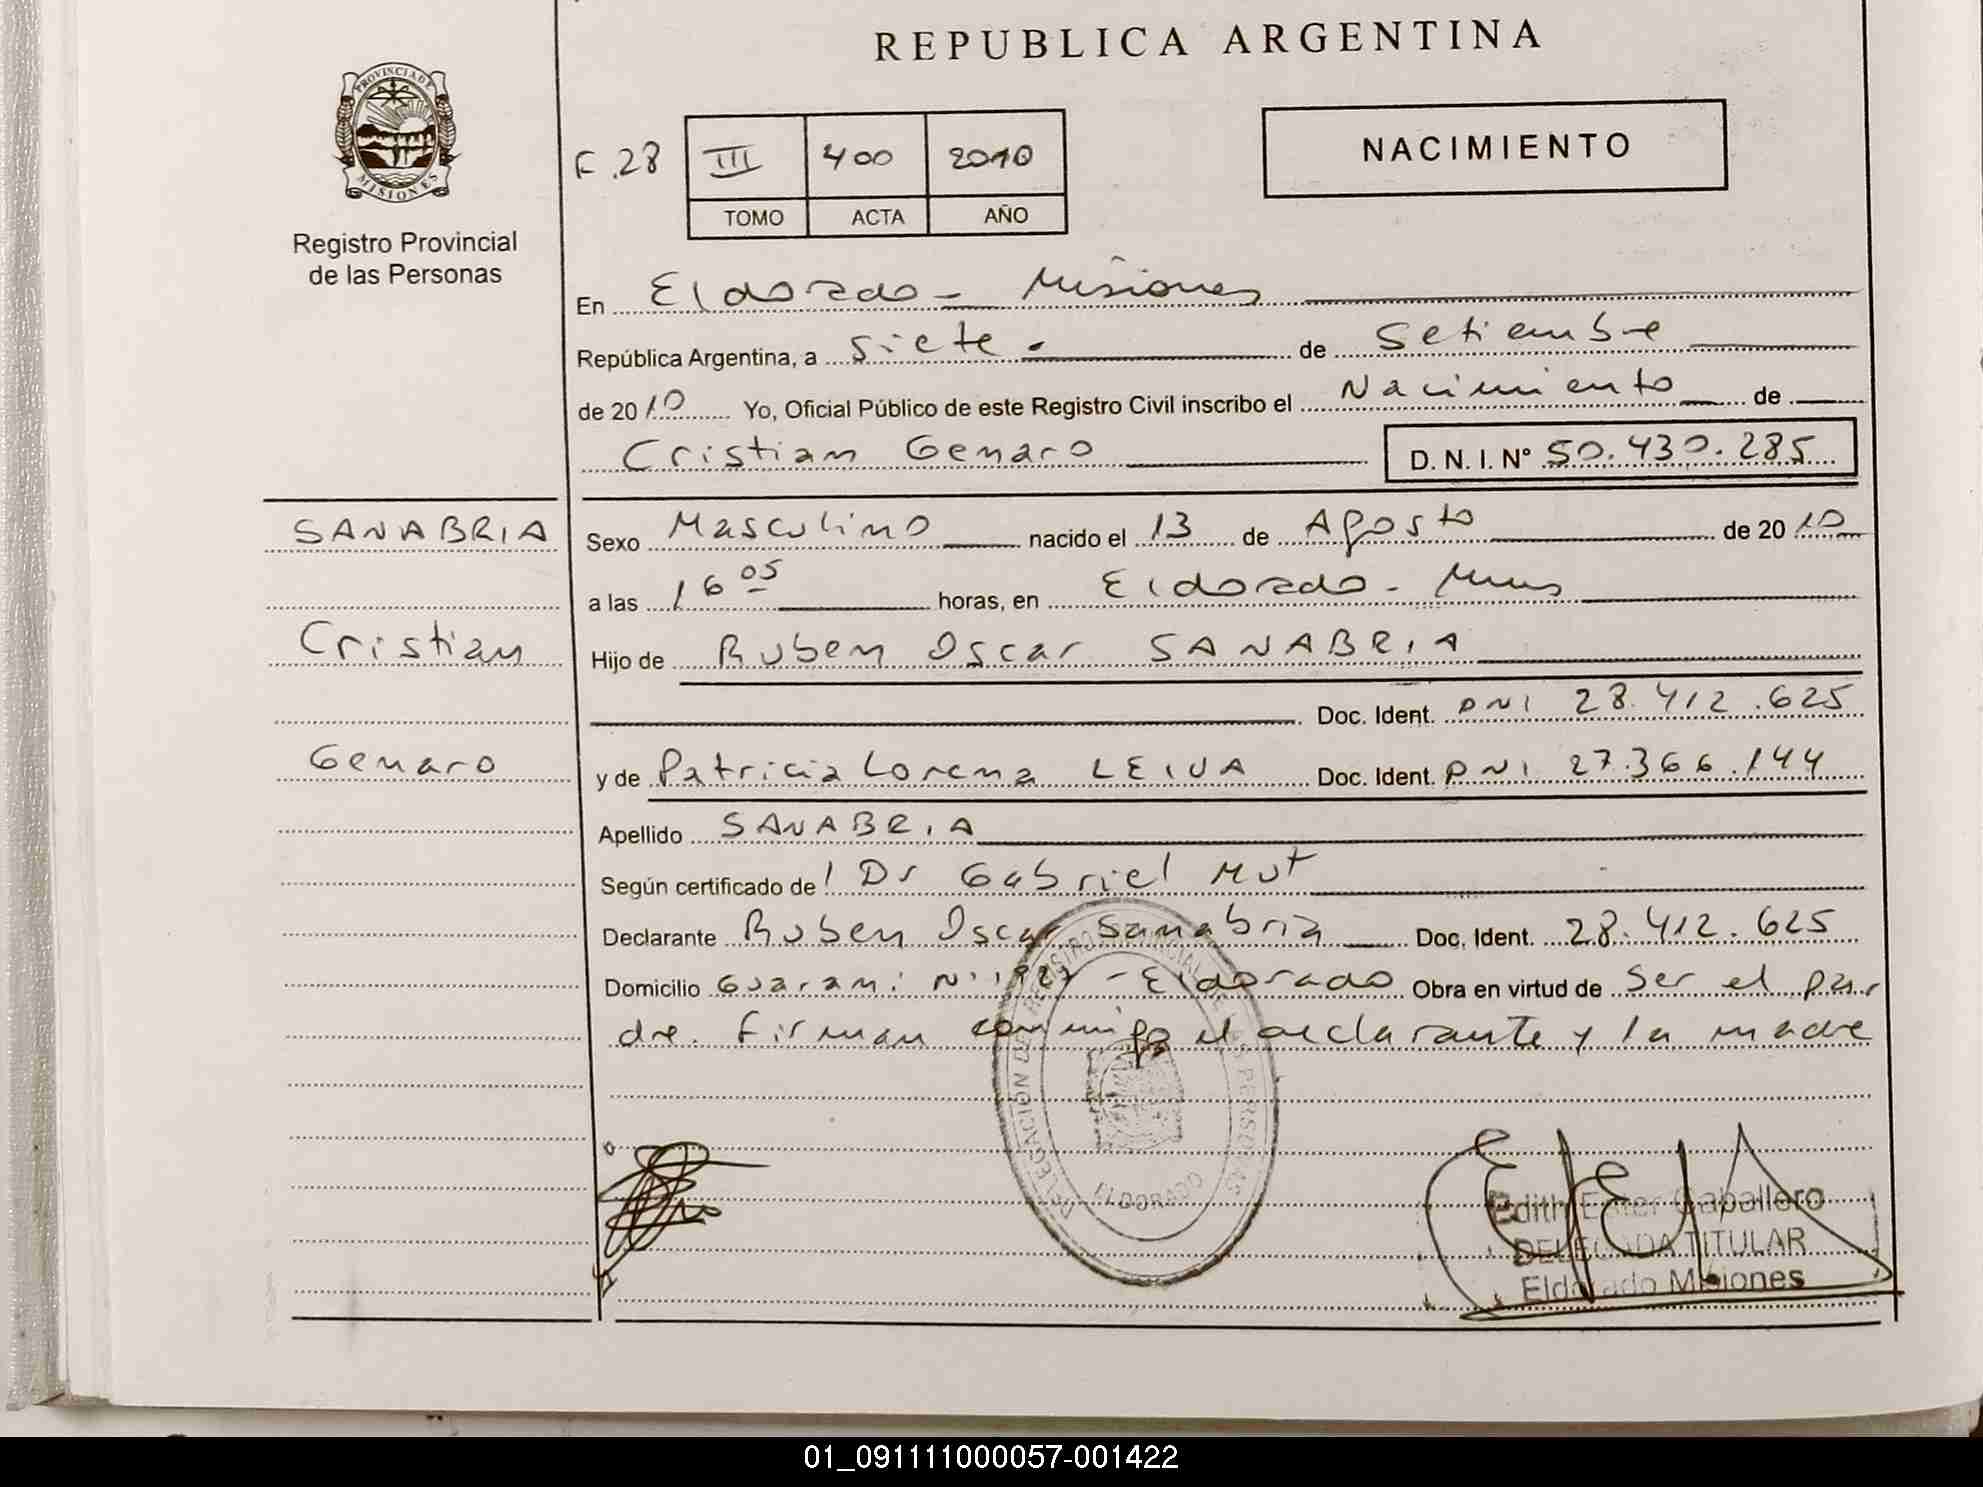 REPUBLICA ARGENTINA
PROVINCIA DE MISIONES
Registro Provincial
de las Personas
F.28 III 400 2010
TOMO ACTA AÑO
NACIMIENTO
En Eldorado - Misiones
República Argentina, a siete.- de Setiembre
de 2010 Yo, Oficial Público de este Registro Civil inscribo el Nacimiento de
Cristian Genaro D. N. I. Nº 50.430.285
SANABRIA
Cristian
Genaro
Sexo Masculino nacido el 13 de Agosto de 2010
a las 16 05 horas, en Eldorado - Mnes
Hijo de Ruben Oscar SANABRIA
Doc. Ident. DNI 28.412.625
y de Patricia Lorena LEIVA Doc. Ident. DNI 27.366.144
Apellido SANABRIA
Según certificado de l Dr Gabriel Mut
Declarante Ruben Oscar Sanabria Doc. Ident. 28.412.625
Domicilio Guarani Nº - Eldorado Obra en virtud de Ser el pa-
dre. Firman conmigo el declarante y la madre
DELEGACION DE REGISTRO PROVINCIAL DE LAS PERSONAS
ELDORADO
Edith Ester Caballero
DELEGADA TITULAR
Eldorado Misiones
01_091111000057-001422